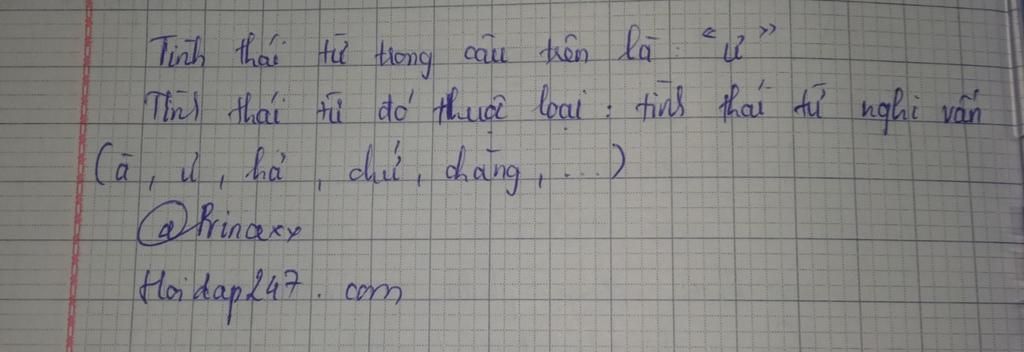 Tình thái từ trong câu trên là: "ư"
Tình thái từ đó thuộc loại: tình thái từ nghi vấn
(à, ư, hả, chứ, chăng, ...)
@Princexx
Hoidap247.com